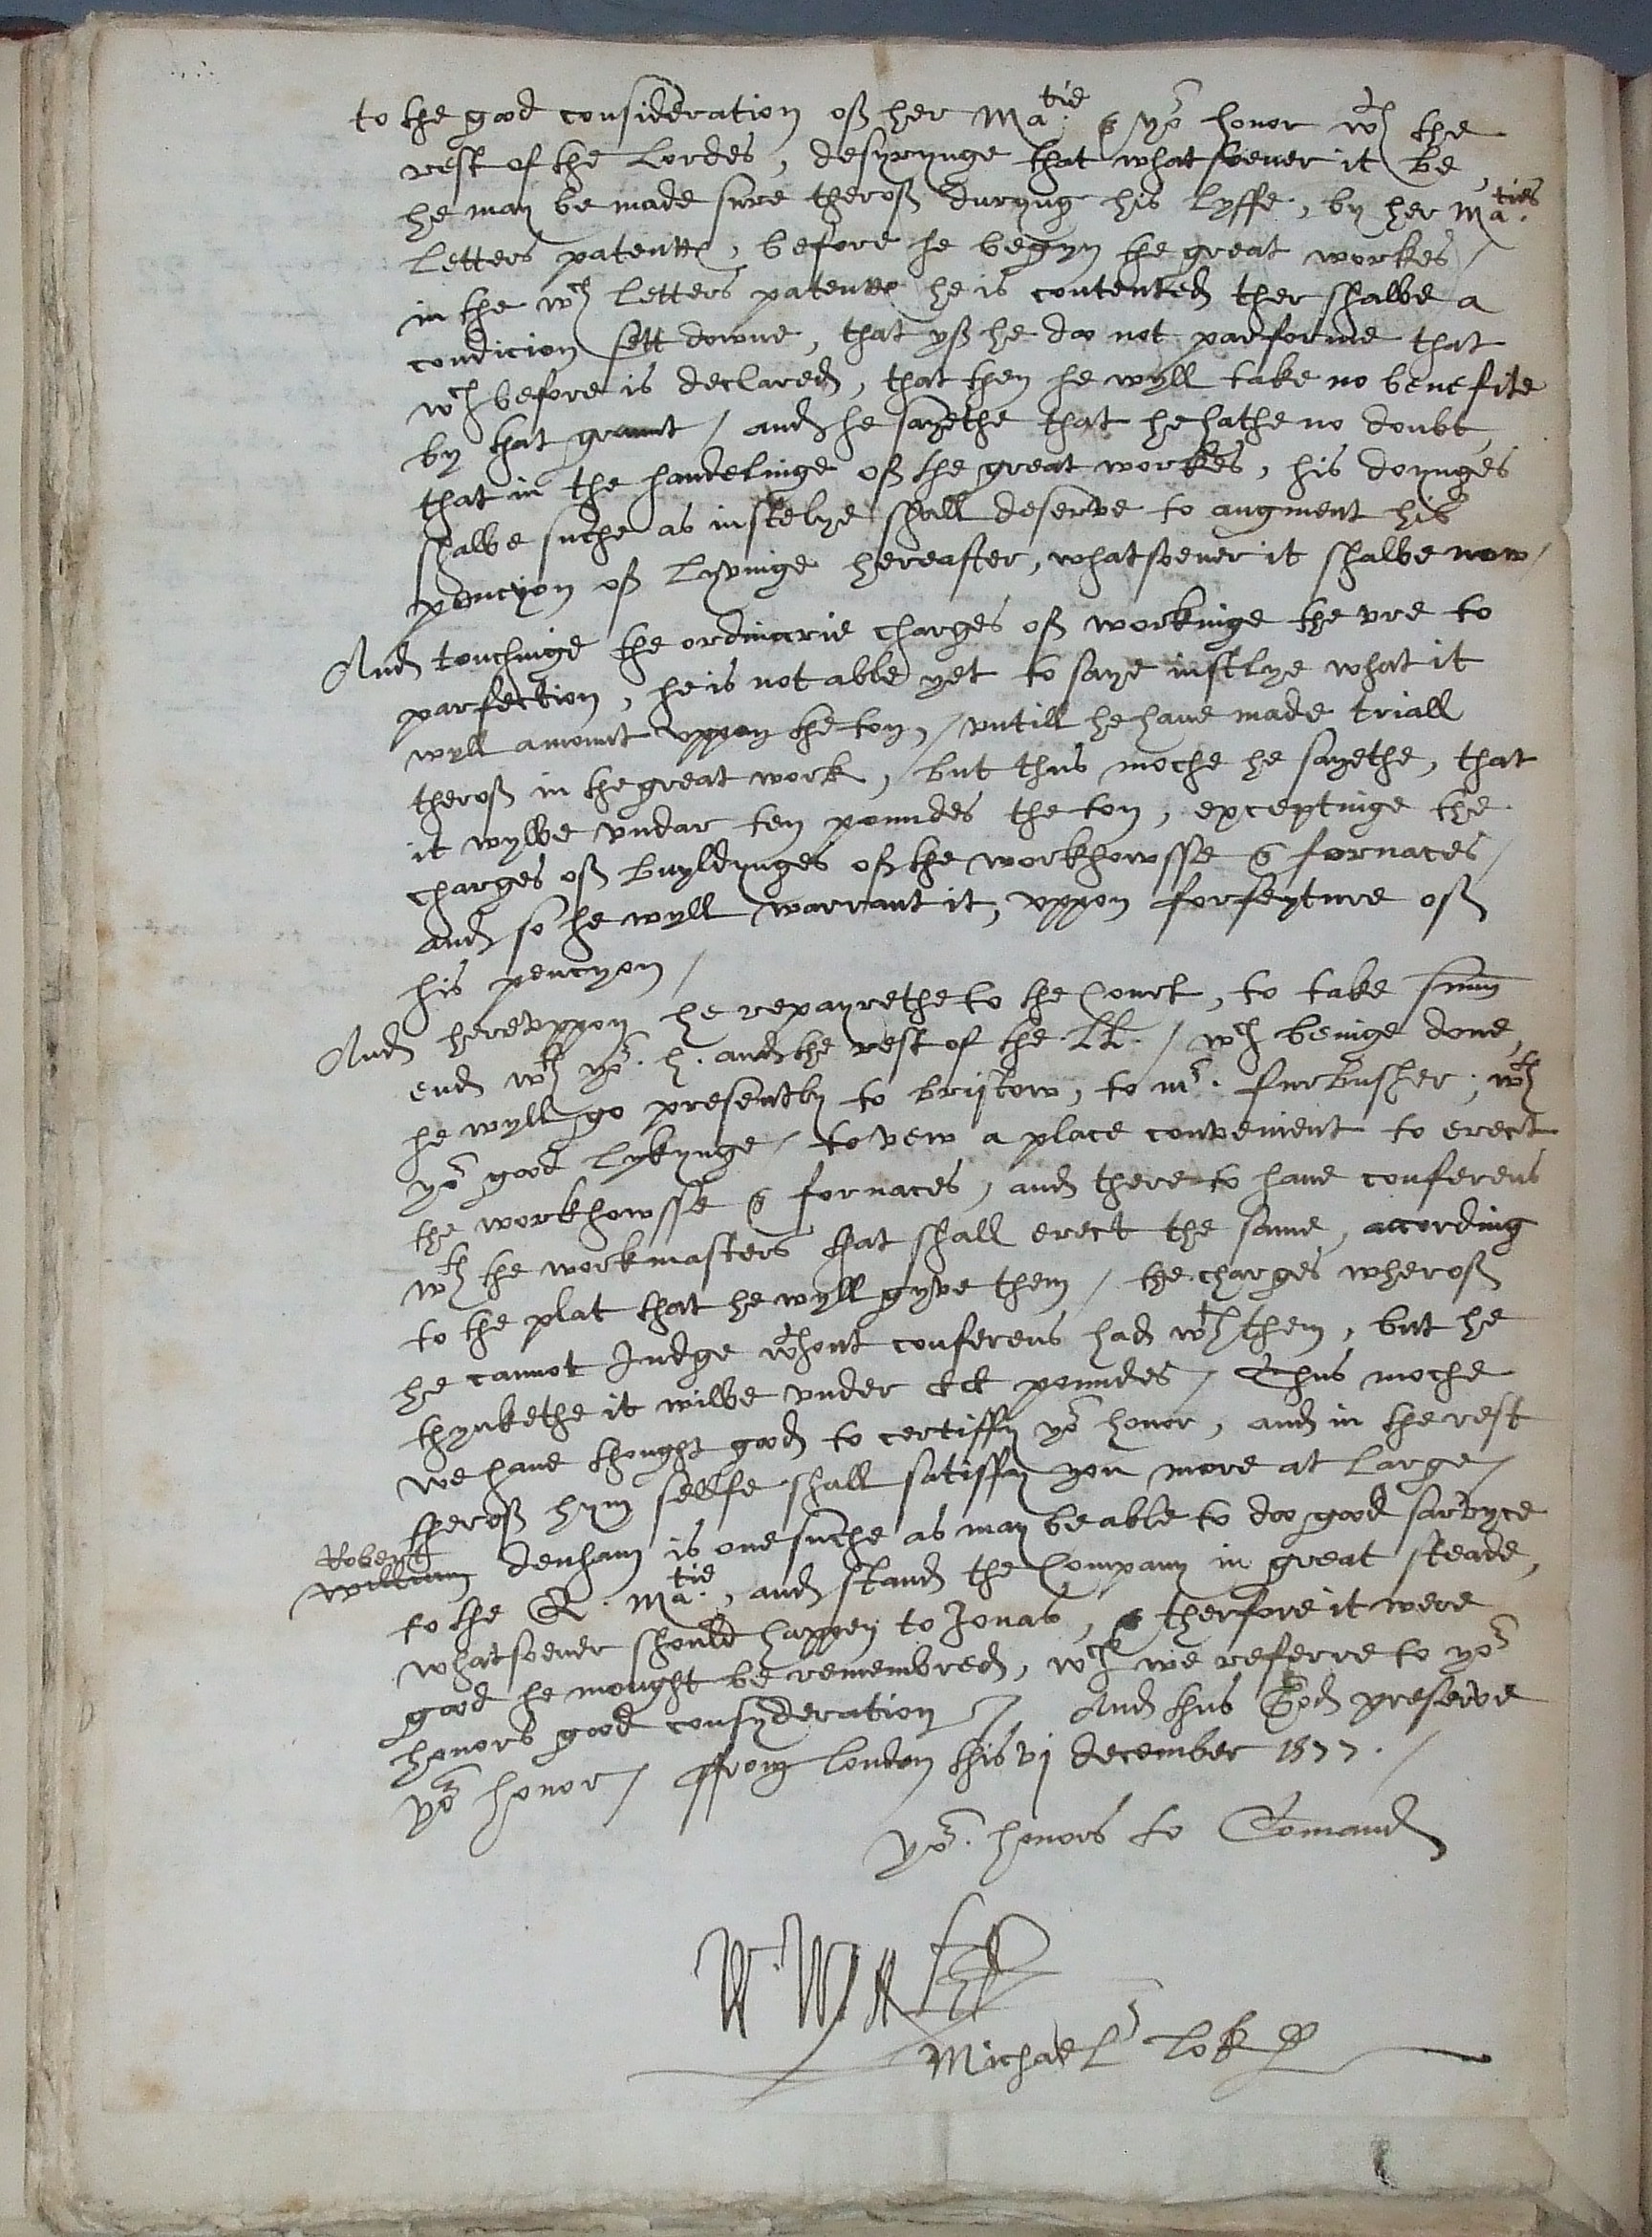 to the good consideration off her Ma:tie & yor honor wth the
rest of the Lordes, desyrynge that whatsoever it be,
he may be made sure theroff duryng his lyffe, by her Ma:ties
letters patentes, before he begyn the great workes /
in the wch letters patentes he is contented ther shalbe a
condicion sett downe, that yff he doo not parforme that
wch before is declared, that then he wyll take no benefite
by that graunt / and he sayethe that he hathe no doubt,
that in the handelinge off the great workes, his doynges
shalbe suche as iustelye shall deserve to augment his
pencyon off lyvinge hereafter, whatsoever it shalbe now /
And touchinge the ordinarie charges off workinge the vre to
parfection, he is not able yet to saye iustlye what it
wyll amount vppon the ton, / vntill he have made triall
theroff in the great work, / but thus moche he sayethe, that
it wylbe vndar ten poundes the ton, exceptinge the
charges off buyldynges off the workhowsse & fornaces /
and so he wyll warrant it, vppon forfeyture off
his pencyon /
And herevppon he repayrethe to the Court, to take summ
end wth yor. h. and the rest of the LL. / wch beinge done,
he wyll go presently to bristow, to mr. furbusher, wth
yor good lykynge / to vew a place convenient to erect
the workhowsse & fornaces, and there to have conferens
wth the workmasters that shall erect the same, according
to the plat that he wyll gyve them / the charges wheroff
he cannot Judge wthout conferens had wth them, but he
thynkethe it wilbe vnder CCC poundes / Thus moche
we have thought good to certiffy yor honor, and in the rest
theroff hym sellfe shall satisffy you more at large /
Robert
William denham is one suche as may be able to doo good sarvyce
to the Q. Ma:tie, and stand the Company in great steade,
whatsoever should happen to Jonas, & therfore it were
good he mought be remembred, wch we referre to yor
honors good consyderation / And thus God preserve
yor honor / ffrom london this vj december 1577. /
yor. honors to Comaund
Michael Lok